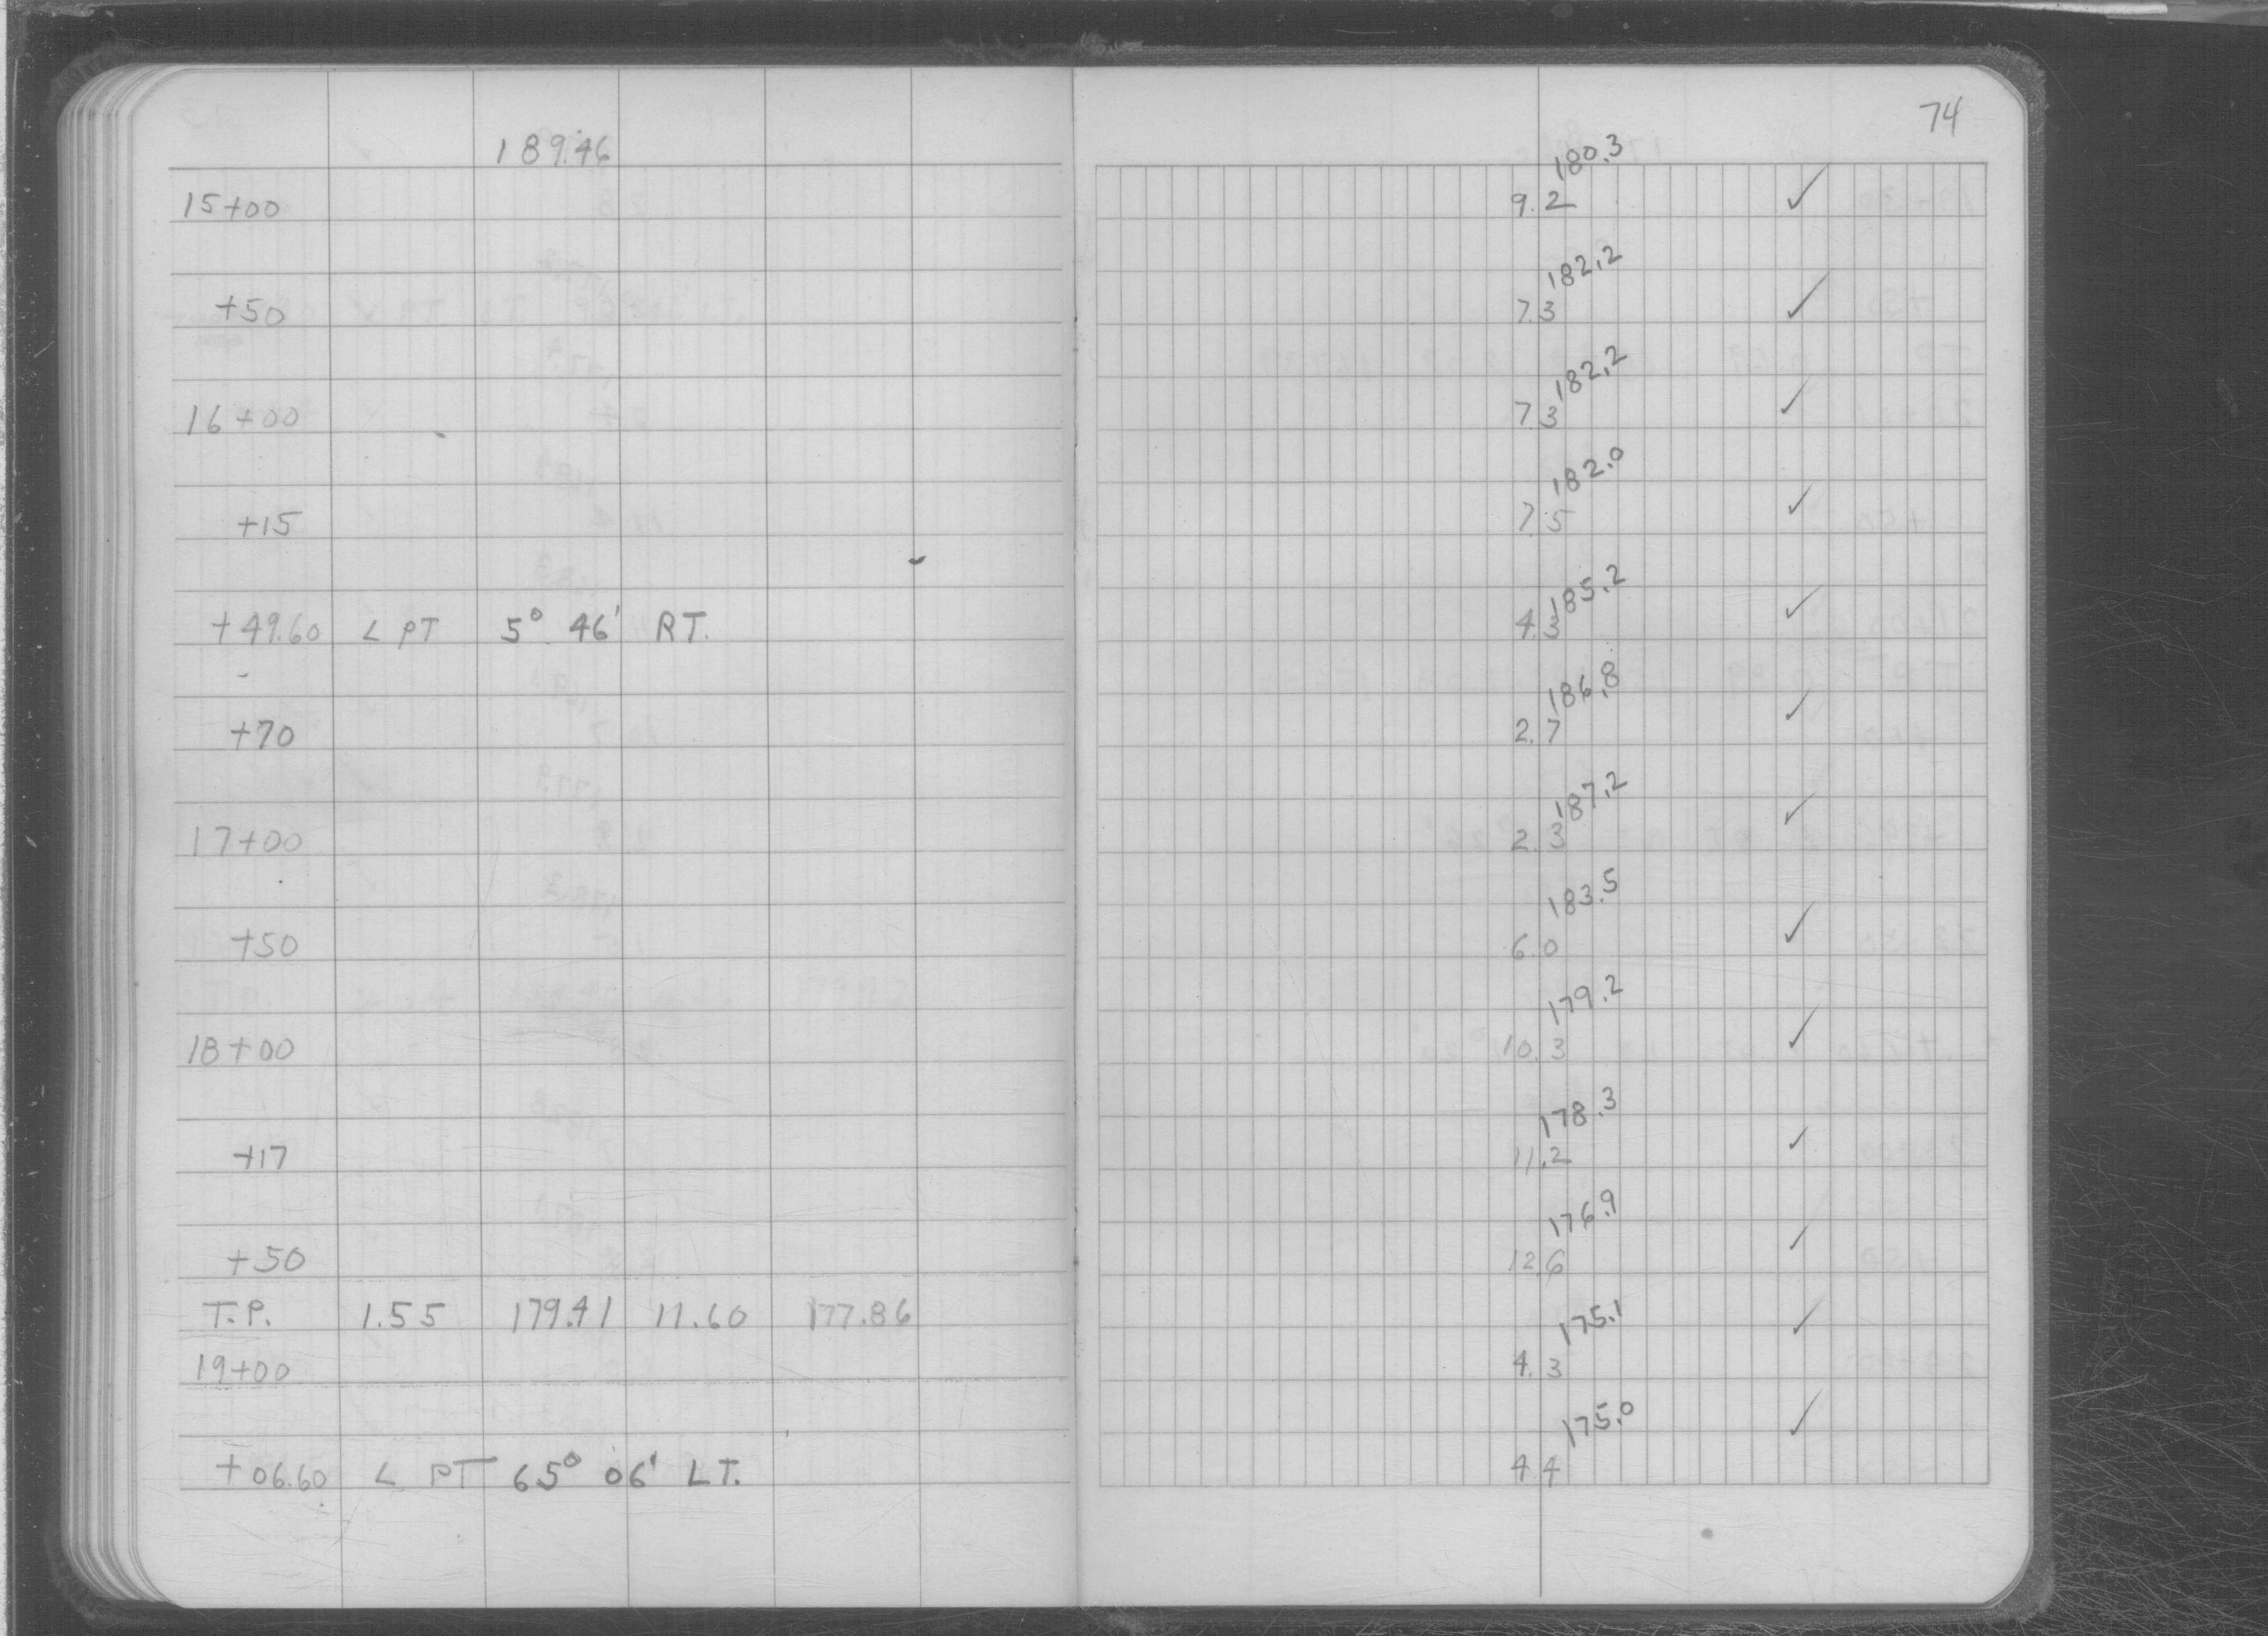 74
189.46
180.3
15+00 9.2 ✓
182.2
+50 7.3 ✓
182.2
16+00 7.3 ✓
182.0
+15 7.5 ✓
185.2
+49.60 ∠ PT 5° 46' RT. 4.3 ✓
186.8
+70 2.7 ✓
187.2
17+00 2.3 ✓
183.5
+50 6.0 ✓
179.2
18+00 10.3 ✓
178.3
+17 11.2 ✓
176.9
+50 12.6 ✓
T.P. 1.55 179.41 11.60 177.86
175.1
19+00 4.3 ✓
175.0
+06.60 ∠ PT 65° 06' LT. 4.4 ✓